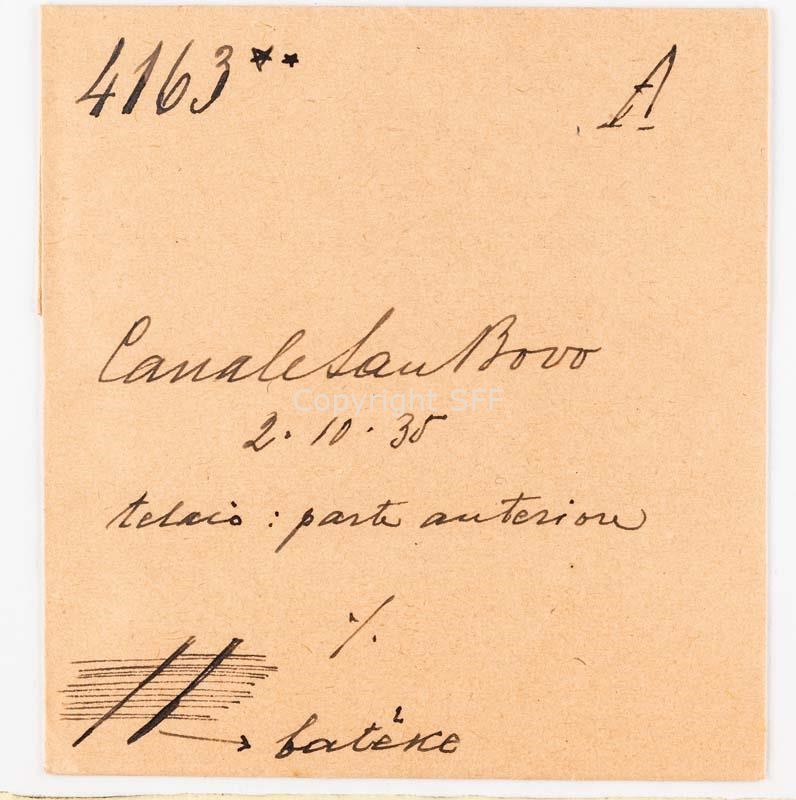 4163** A
Canale San Bovo
Copyright SFF
2. 10. 35
telaio : parte anteriore
·/.
batëke